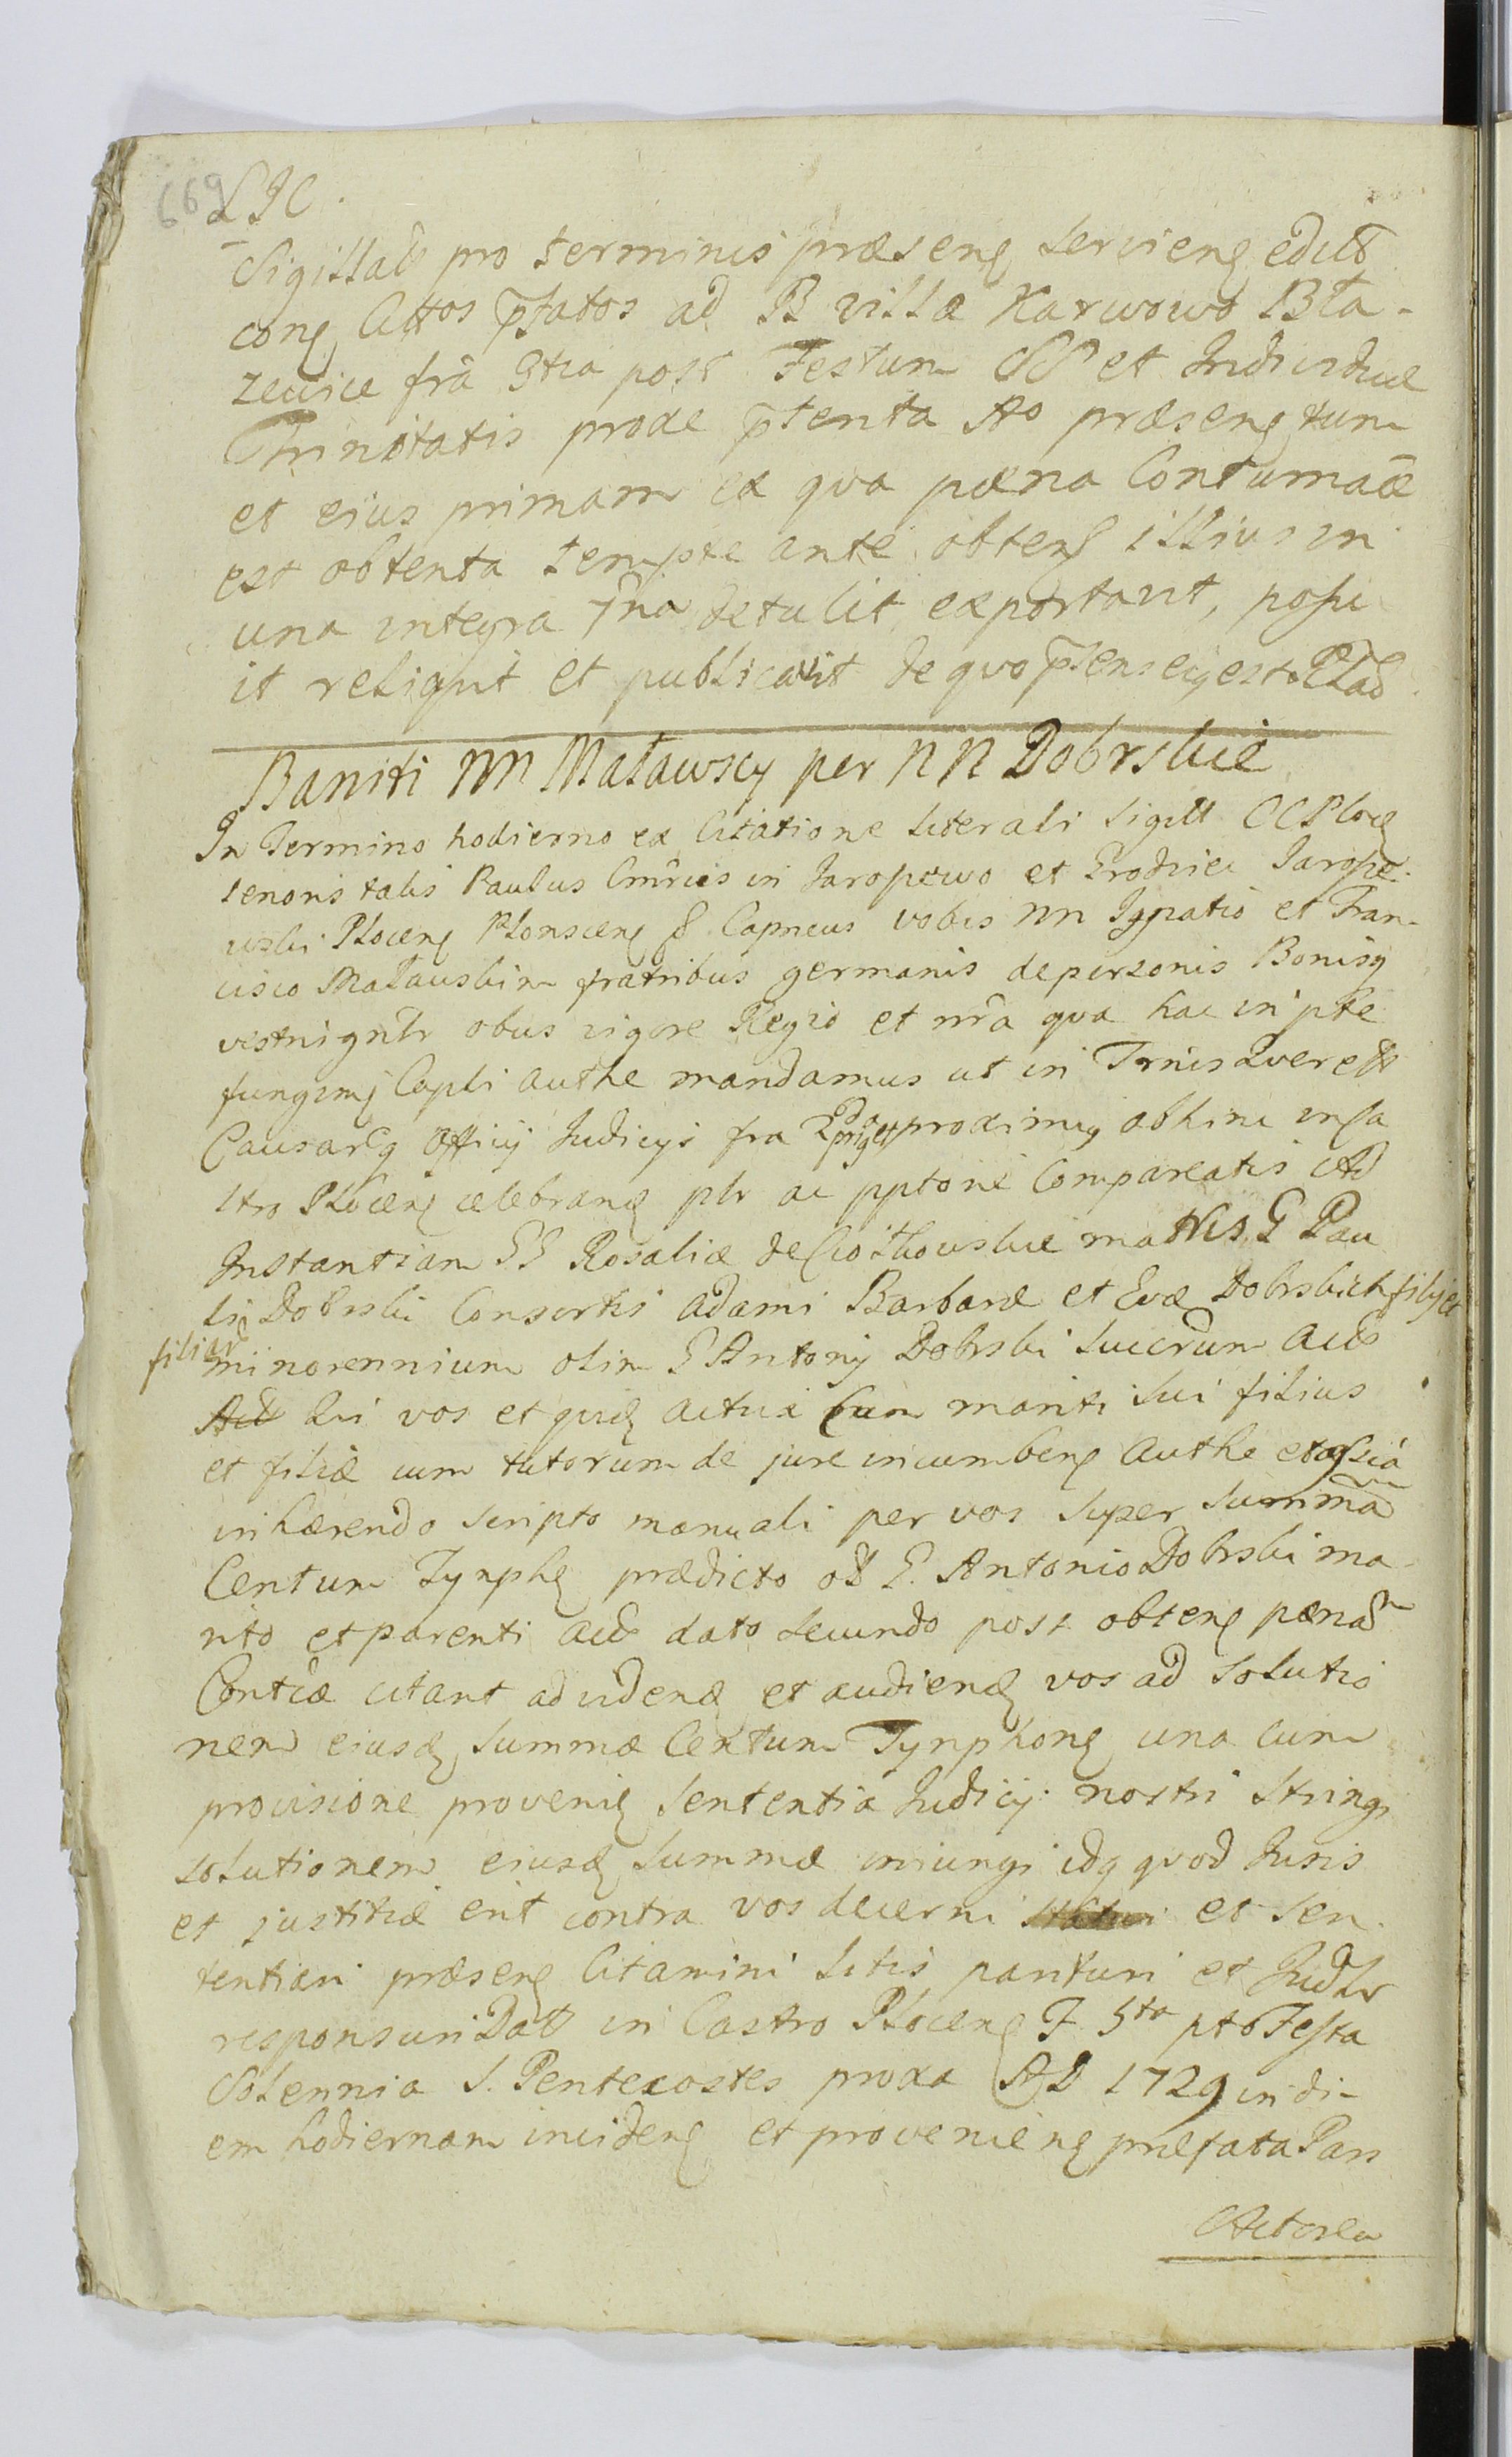 669
LJC.
Sigillatt pro terminis præsenƺ servienƺ edittƺ
conƺ Attos p̃fatos ad B villæ Karwowo Bła-
zewice frã 3tia post Festum SS et Individuæ
Trinitatis proxe p̃tenta Ao præsenƺ tum
et eius primam ex qva pæna Contumaciæ
est obtenta tempore ante obtenƺ illius in
una integra detulit exportavit, posu
it reliqvit et publicavit de qvo
Baniti NN Maławscy per NN Dobrskie
In Termino hodierno ex Citatione literali sigill CCPloceƺ
tenoris talis Paulus in Jaropewo et Grodziec Jarope-
wski Plocenƺ Plonscenƺ Capneus vobis NN Ignatio et Fran-
cisco Maławskim fratribus germanis de personis Bonisq
vestris gnlr obus vigore Regio et nr̃a qva hac in pte
fungimƺ Capli authe mandamus ut in Trnis Qverett
Causarq Officij Judicijs fra 2da proximiq abhinc
Ctro Plocenƺ celebranƺ plr ac pptorie Compareatis Ad
Instantiam GG Rosaliæ de matris G Pau
li Dobrski Consortis Adami Barbaræ et Evæ Dobrskich filij et
filiar minorennium olim G Antonij Dobrski Actƺ
Qui vos et qvidƺ actrix cum mariti sui filius
et filiæ cum tutorum de jure incumbenƺ authe et
inhærendo scripto manuali per vos super summã
Centum Tynphƺ prædicto ol G. Antonio Dobrski ma-
rito et parenti actƺ dato secundo post obtenƺ pænam
Contciæ citant ad videnƺ et audienƺ vos ad solutio
nem eiusdƺ summæ Centum Tynphonƺ una cum
provisione provenieƺ sententia Judicij nostri stringi
solutionem eiusdƺ summæ iniungi idq qvod Juris
et justitiæ erit contra vos decerni et sen-
tentiari præsenƺ Citamini litis parituri et Judlr
responsuri Datt in Castro Plocenƺ F 5ta pt6 Festa
Solennia S. Pentecostes proxa AD 1729 in di-
em hodiernam incidenƺ et provenienƺ præfata Pars
Actorea